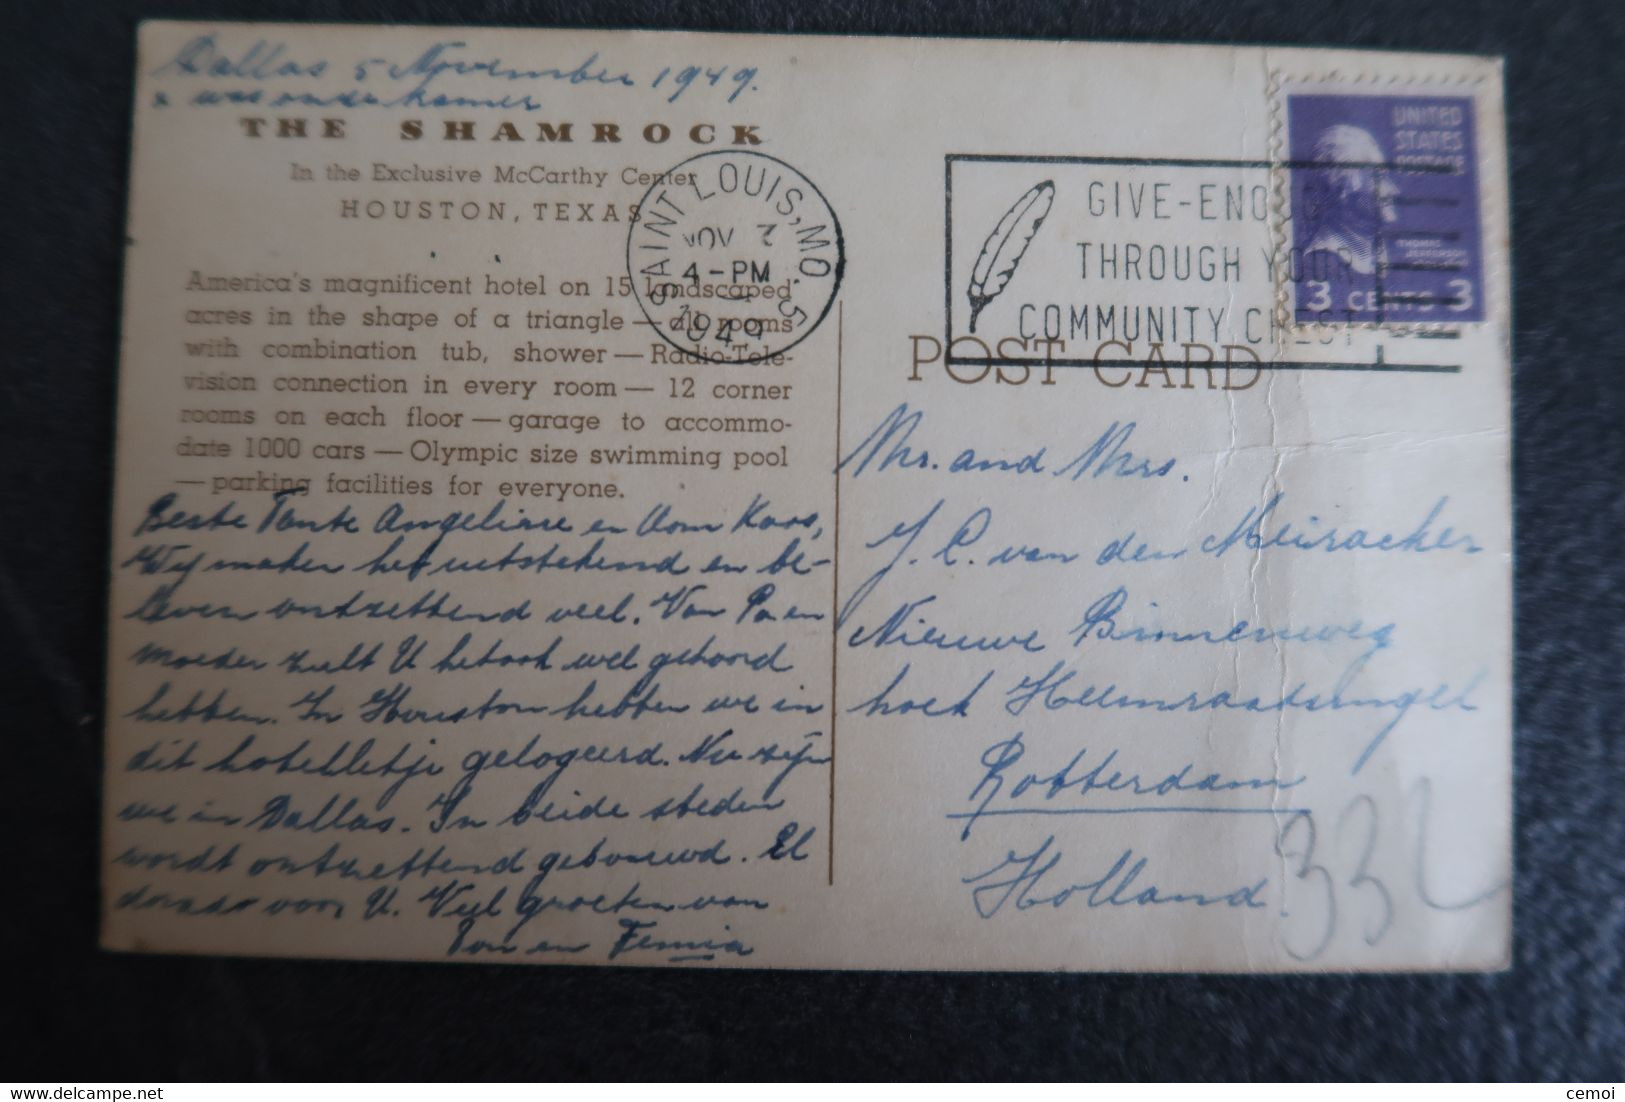 Dallas 5 November 1949.
x was onze kamer
THE SHAMROCK
In the Exclusive McCarthy Center
HOUSTON, TEXAS
America's magnificent hotel on 15 landscaped
acres in the shape of a triangle — all rooms
with combination tub, shower — Radio-Tele-
vision connection in every room — 12 corner
rooms on each floor — garage to accommo-
date 1000 cars — Olympic size swimming pool
— parking facilities for everyone.
Beste Tante Angelisse en Oom Koos,
Wij maken het uitstekend en be-
leven ontzettend veel. Van Pa en
moeder zult U het ook wel gehoord
hebben. In Houston hebben we in
dit hotelletje gelogeerd. Nu zijn
we in Dallas. In beide steden
wordt ontzettend gebouwd. El
dorado voor U. Veel groeten van
Ton en Femia
SAINT LOUIS, MO. 5
NOV 7
4-PM
1949
GIVE-ENOUGH
THROUGH YOUR
COMMUNITY CHEST
UNITED
STATES
POSTAGE
THOMAS
JEFFERSON
3 CENTS 3
POST CARD
Mr. and Mrs.
J. C. van den Meiracker
Nieuwe Binnenweg
hoek Heemraadsingel
Rotterdam
Holland.
332
cemoi